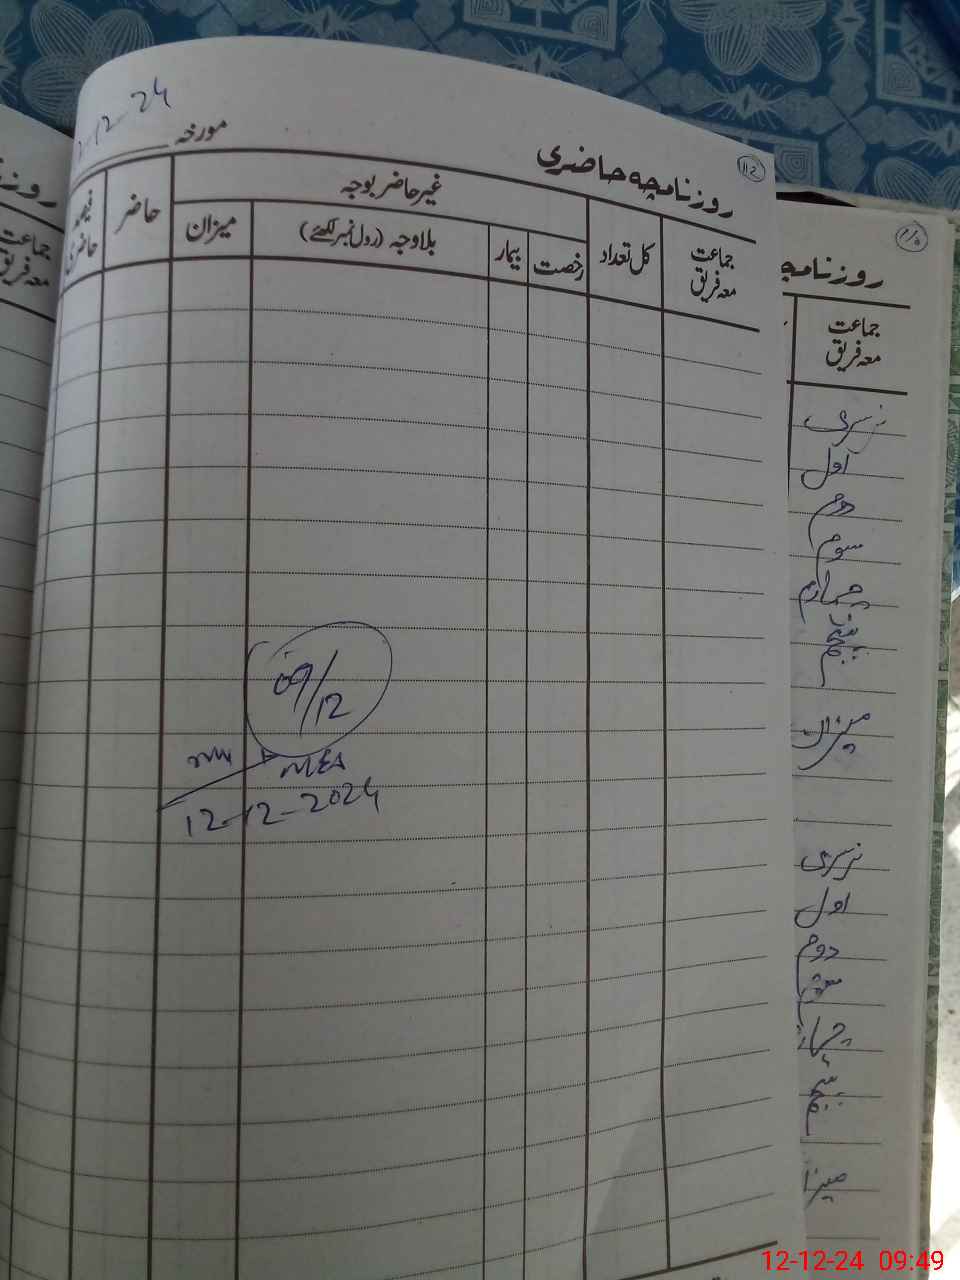 112
روزنامچہ حاضری
مورخہ -12-24
جماعت معہ فریق
کل تعداد
غیر حاضر بوجہ
رخصت
بیمار
بلاوجہ (رول نمبر لکھئے)
میزان
حاضر
فیصد حاضری
09/12
MEA
12-12-2024
روزنامچہ
جماعت
معہ فریق
نرسری
اول
دوم
سوم
چہارم
پنجم
میزان
نرسری
اول
دوم
پنجم
روز
جماعت
معہ فریق
12-12-24 09:49